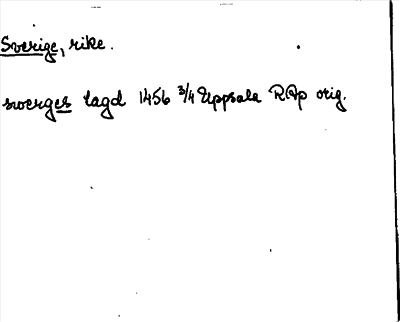 Sverige, rike.
swerges lagd 1456 3/4 Uppsala RAp orig.